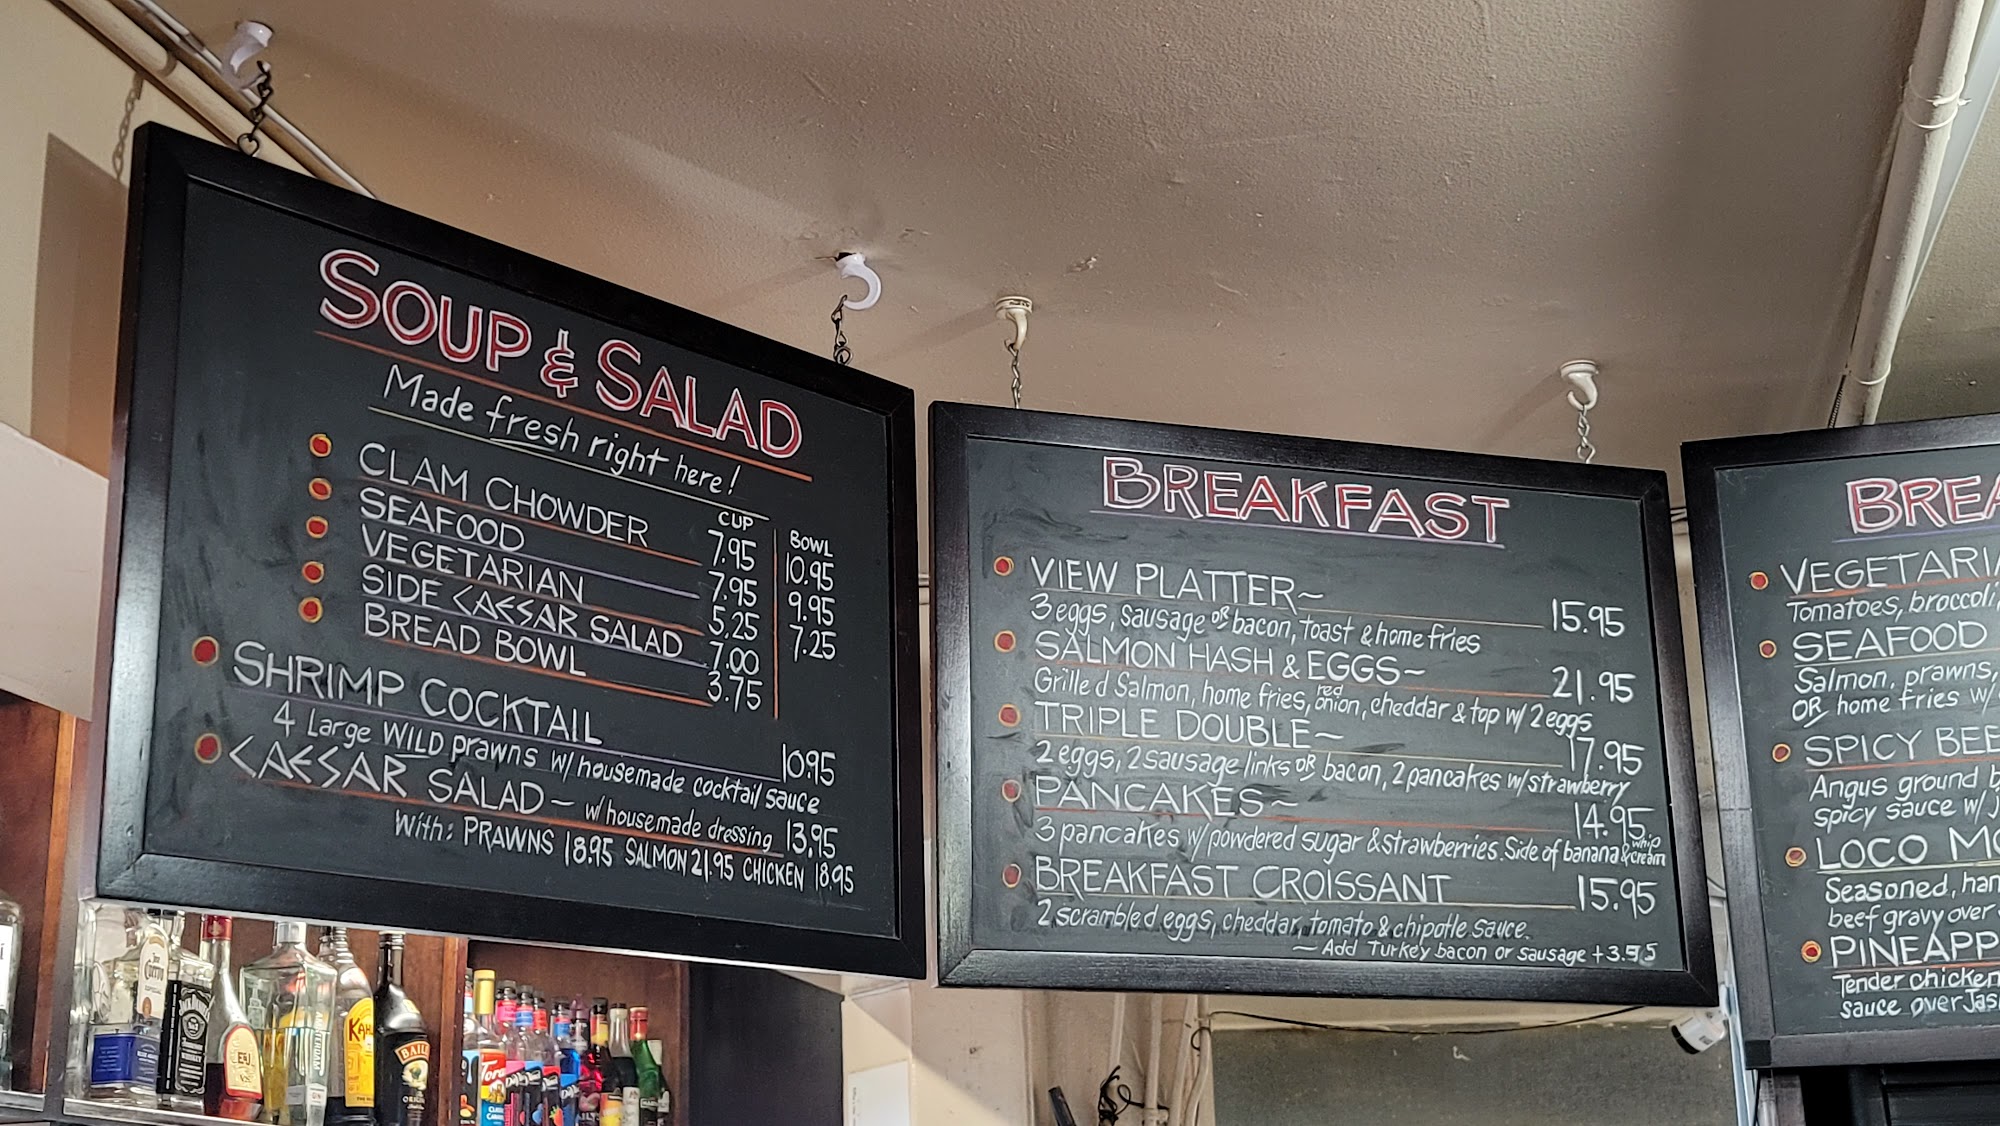 SOUP & SALAD
Made fresh right here!
CUP BOWL
CLAM CHOWDER 7.95 10.95
SEAFOOD 7.95 9.95
VEGETARIAN 5.25 7.25
SIDE CAESAR SALAD 7.00
BREAD BOWL 3.75
SHRIMP COCKTAIL 10.95
4 Large WILD prawns w/ housemade cocktail sauce
CAESAR SALAD ~ w/ housemade dressing 13.95
With: PRAWNS 18.95 SALMON 21.95 CHICKEN 18.95
BREAKFAST
VIEW PLATTER~ 15.95
3 eggs, sausage OR bacon, toast & home fries
SALMON HASH & EGGS~ 21.95
Grilled Salmon, home fries, red onion, cheddar & top w/ 2 eggs
TRIPLE DOUBLE~ 17.95
2 eggs, 2 sausage links OR bacon, 2 pancakes w/ strawberry
PANCAKES~ 14.95
3 pancakes w/ powdered sugar & strawberries. Side of banana & whip cream
BREAKFAST CROISSANT 15.95
2 scrambled eggs, cheddar, tomato & chipotle sauce.
~ Add Turkey bacon or sausage +3.95
BREA
VEGETARIA
Tomatoes, broccoli,
SEAFOOD
Salmon, prawns,
OR home fries w/
SPICY BEE
Angus ground b
spicy sauce w/ j
LOCO MO
Seasoned, han
beef gravy over
PINEAPP
Tender chicken
sauce over Jas
KAH
BAIL
E&J
VS
Tora